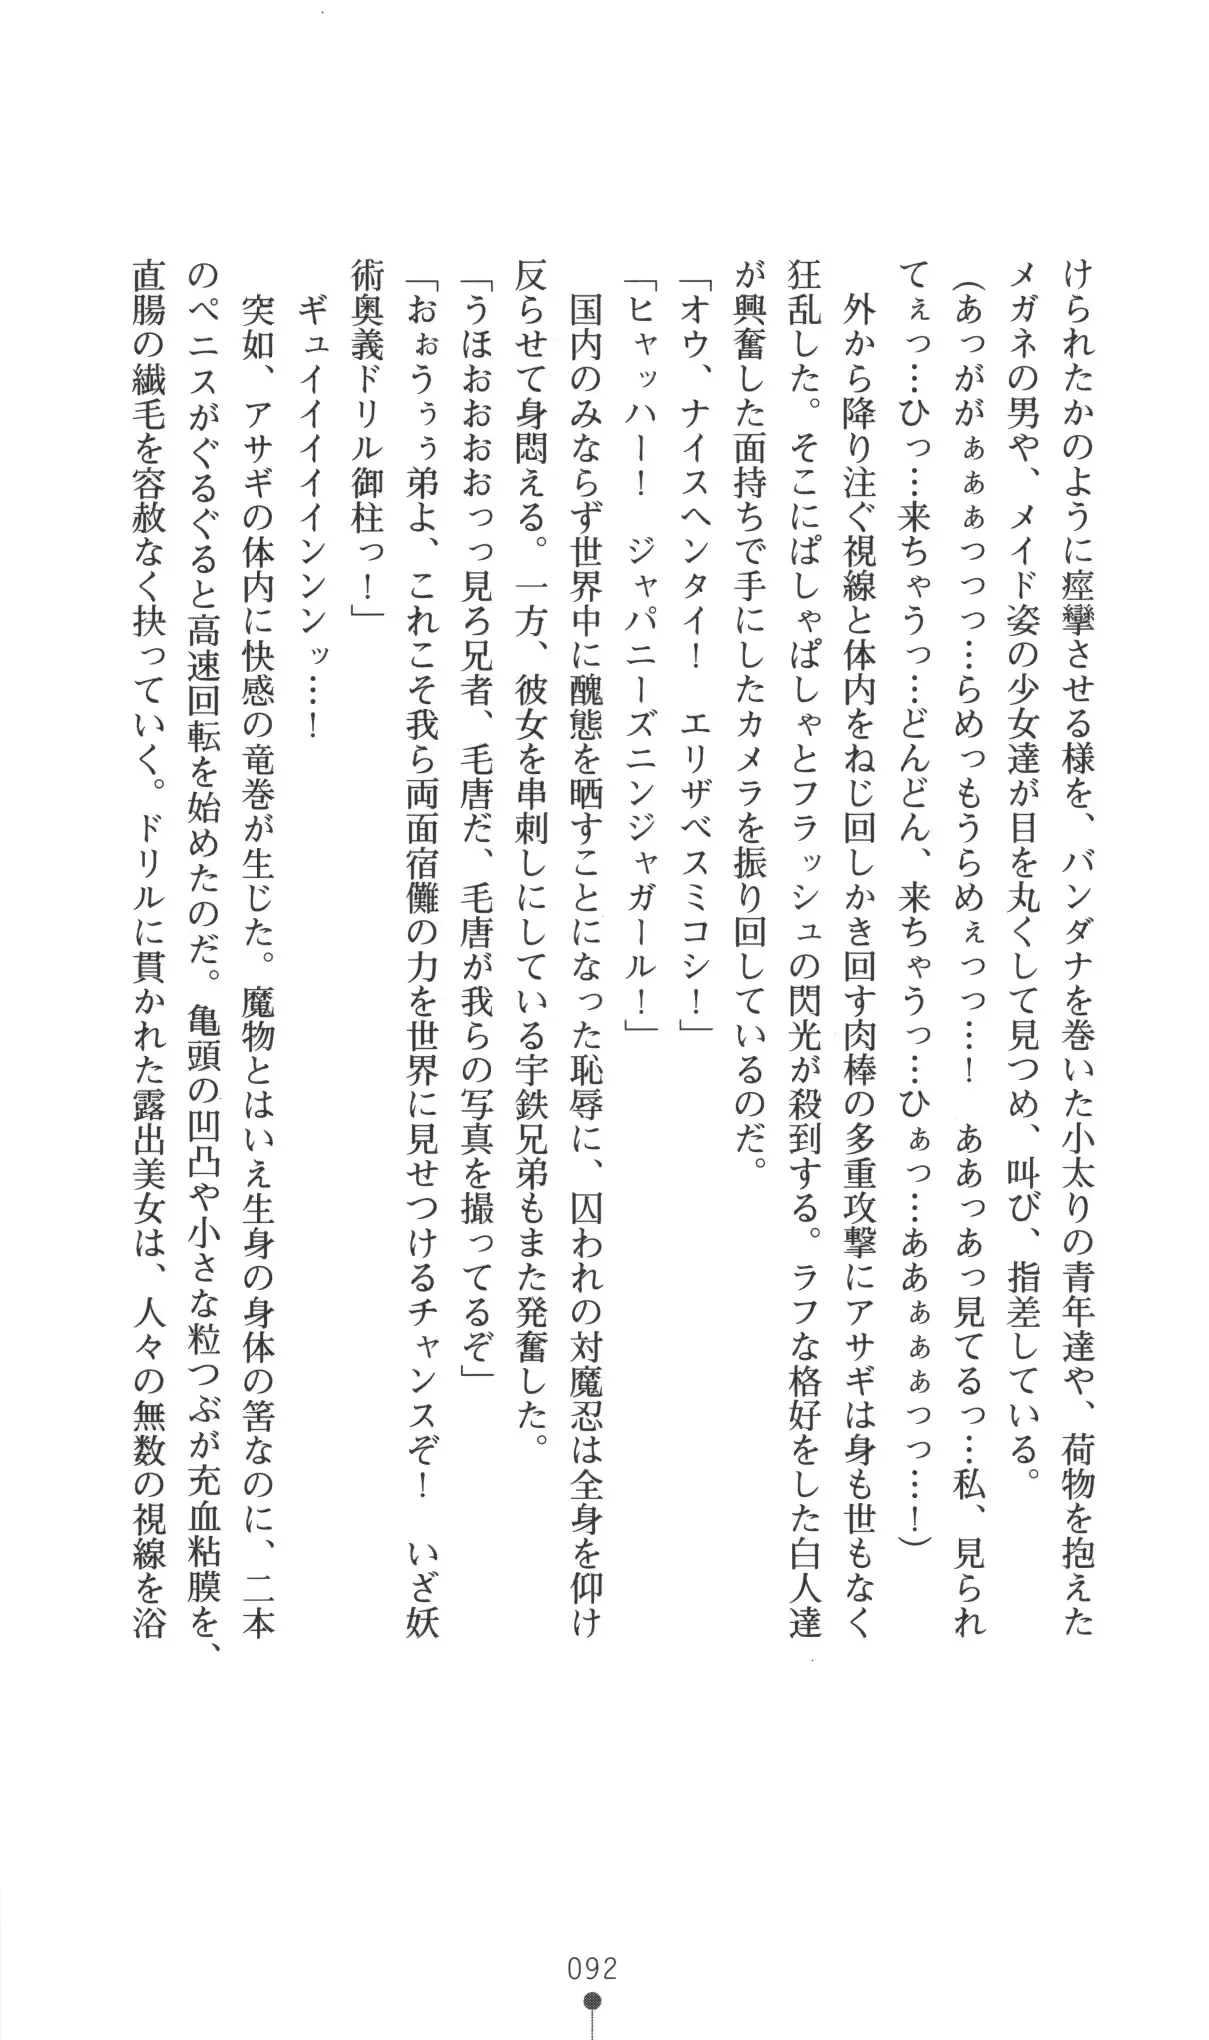 けられたかのように痙攣させる様を、バンダナを巻いた小太りの青年達や、荷物を抱えた
メガネの男や、メイド姿の少女達が目を丸くして見つめ、叫び、指差している。
(あっがぁぁぁっっっ…らめっもうらめぇっっ…！　ああっあっ見てるっ…私、見られ
てぇっ…ひっ…来ちゃうっ…どんどん、来ちゃうっ…ひぁっ…ああぁぁぁっっ…！)
　外から降り注ぐ視線と体内をねじ回しかき回す肉棒の多重攻撃にアサギは身も世もなく
狂乱した。そこにぱしゃぱしゃとフラッシュの閃光が殺到する。ラフな格好をした白人達
が興奮した面持ちで手にしたカメラを振り回しているのだ。
「オウ、ナイスヘンタイ！　エリザベスミコシ！」
「ヒャッハー！　ジャパニーズニンジャガール！」
　国内のみならず世界中に醜態を晒すことになった恥辱に、囚われの対魔忍は全身を仰け
反らせて身悶える。一方、彼女を串刺しにしている宇鉄兄弟もまた発奮した。
「うほおおおおっっ見ろ兄者、毛唐だ、毛唐が我らの写真を撮ってるぞ」
「おぉうぅぅ弟よ、これこそ我ら両面宿儺の力を世界に見せつけるチャンスぞ！　いざ妖
術奥義ドリル御柱っ！」
　ギュイイイイインンンッ…！
　突如、アサギの体内に快感の竜巻が生じた。魔物とはいえ生身の身体の筈なのに、二本
のペニスがぐるぐると高速回転を始めたのだ。亀頭の凹凸や小さな粒つぶが充血粘膜を、
直腸の繊毛を容赦なく抉っていく。ドリルに貫かれた露出美女は、人々の無数の視線を浴
092